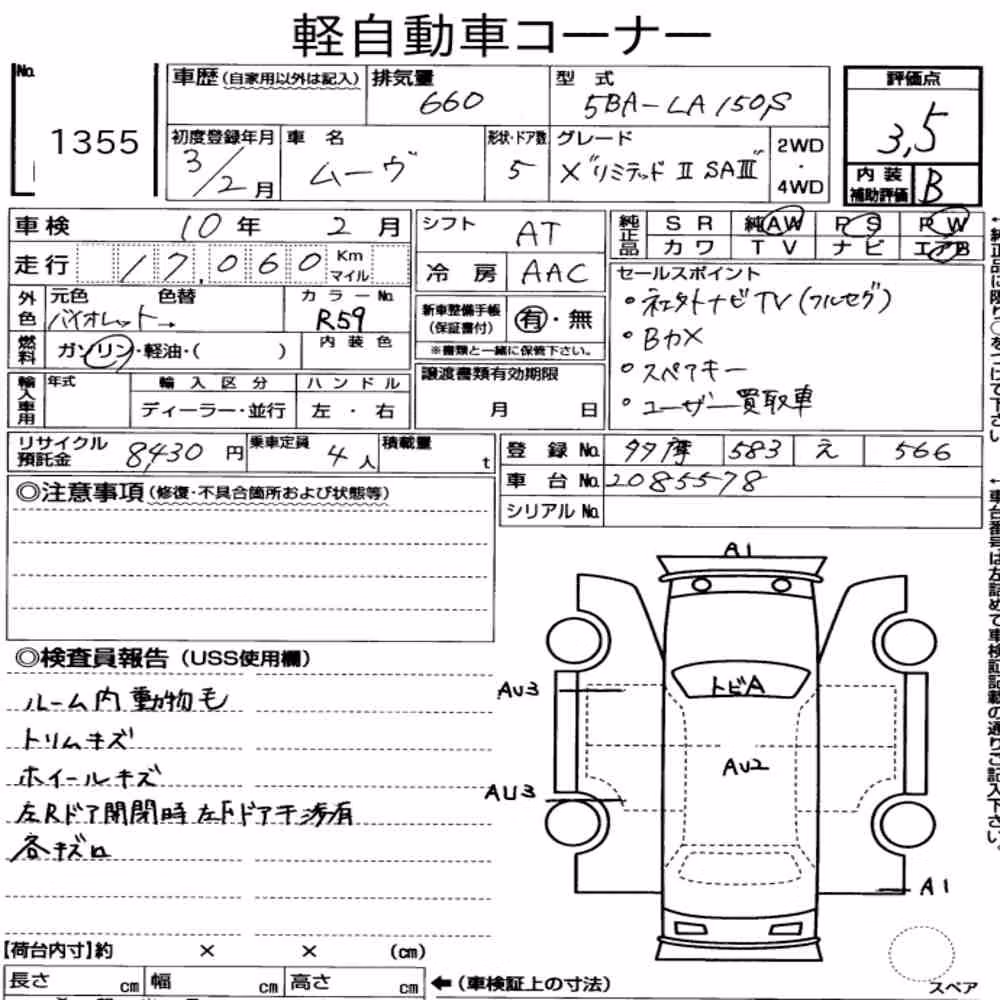 軽自動車コーナー
No. 1355
車歴(自家用以外は記入) 排気量 660 型式 5BA-LA150S 評価点 3,5
初度登録年月 3/2月 車名 ムーヴ 形状・ドア数 5 グレード X"リミテッドⅡSAⅢ" 2WD・4WD
内装補助評価 B
車検 10年 2月 シフト AT 純正品 SR 純AW PS PW
カワ TV ナビ エアB
走行 17,060 Km マイル 冷房 AAC
セールスポイント
外色 元色 バイオレット→ 色替 カラーNo. R59
新車整備手帳(保証書付) 有・無
※書類と一緒に保管下さい。
燃料 ガソリン・軽油・( ) 内装色
・ネクストナビTV(フルセグ)
・Bカメ
・スペアキー
・ユーザー買取車
譲渡書類有効期限
月 日
輸入車用 年式 輸入区分 ハンドル
ディーラー・並行 左・右
リサイクル預託金 8430円 乗車定員 4人 積載量 t
登録No. 多摩 583 え 566
車台No. 2085578
シリアルNo.
◎注意事項(修復・不具合箇所および状態等)
◎検査員報告(USS使用欄)
ルーム内動物毛
トリムキズ
ホイールキズ
左Rドア開閉時左Fドア干渉有
各キズロ
A1
トビA
AU3
AU2
AU3
A1
【荷台内寸】約 × × (cm)
長さ cm 幅 cm 高さ cm ←(車検証上の寸法)
スペア
←純正品に限り○をつけて下さい
←車台番号は左詰めで車検証記載の通りご記入下さい。